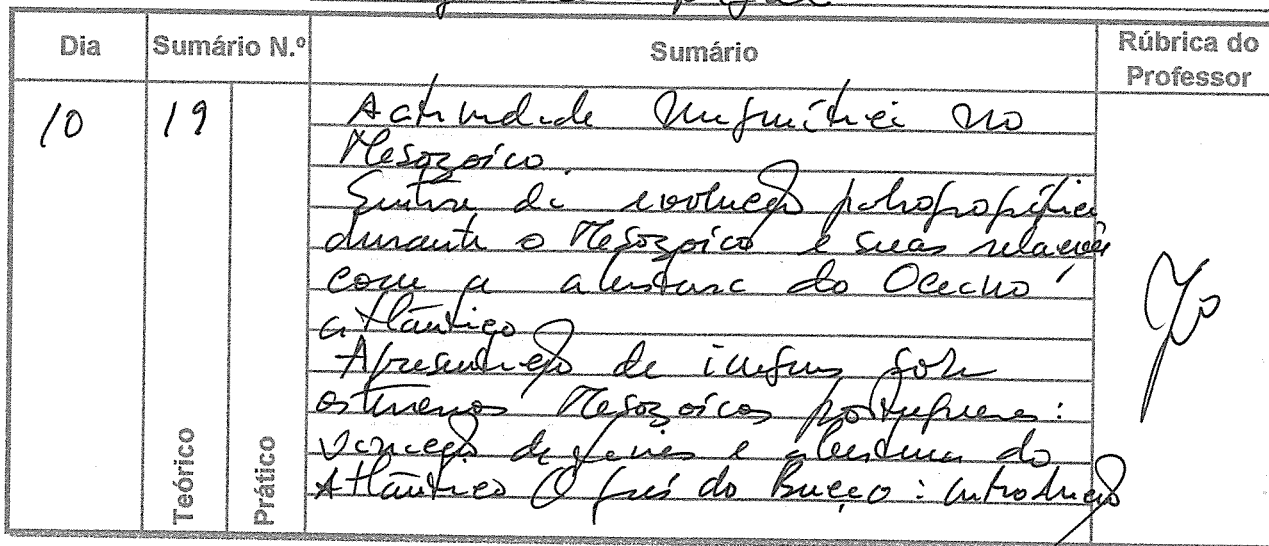 Dia Sumário N.º Sumário Rúbrica do Professor
10 19
Actividade Magmática no
Mesozoico.
Síntese da evolução paleogeográfica
durante o Mesozoico e suas relações
com a abertura do Oceano
Atlântico
Apresentação de imagens sobre
os terrenos Mesozoicos portugueses:
variação de fácies e abertura do
Atlântico O grés do Buçaco: introdução
Teórico
Prático